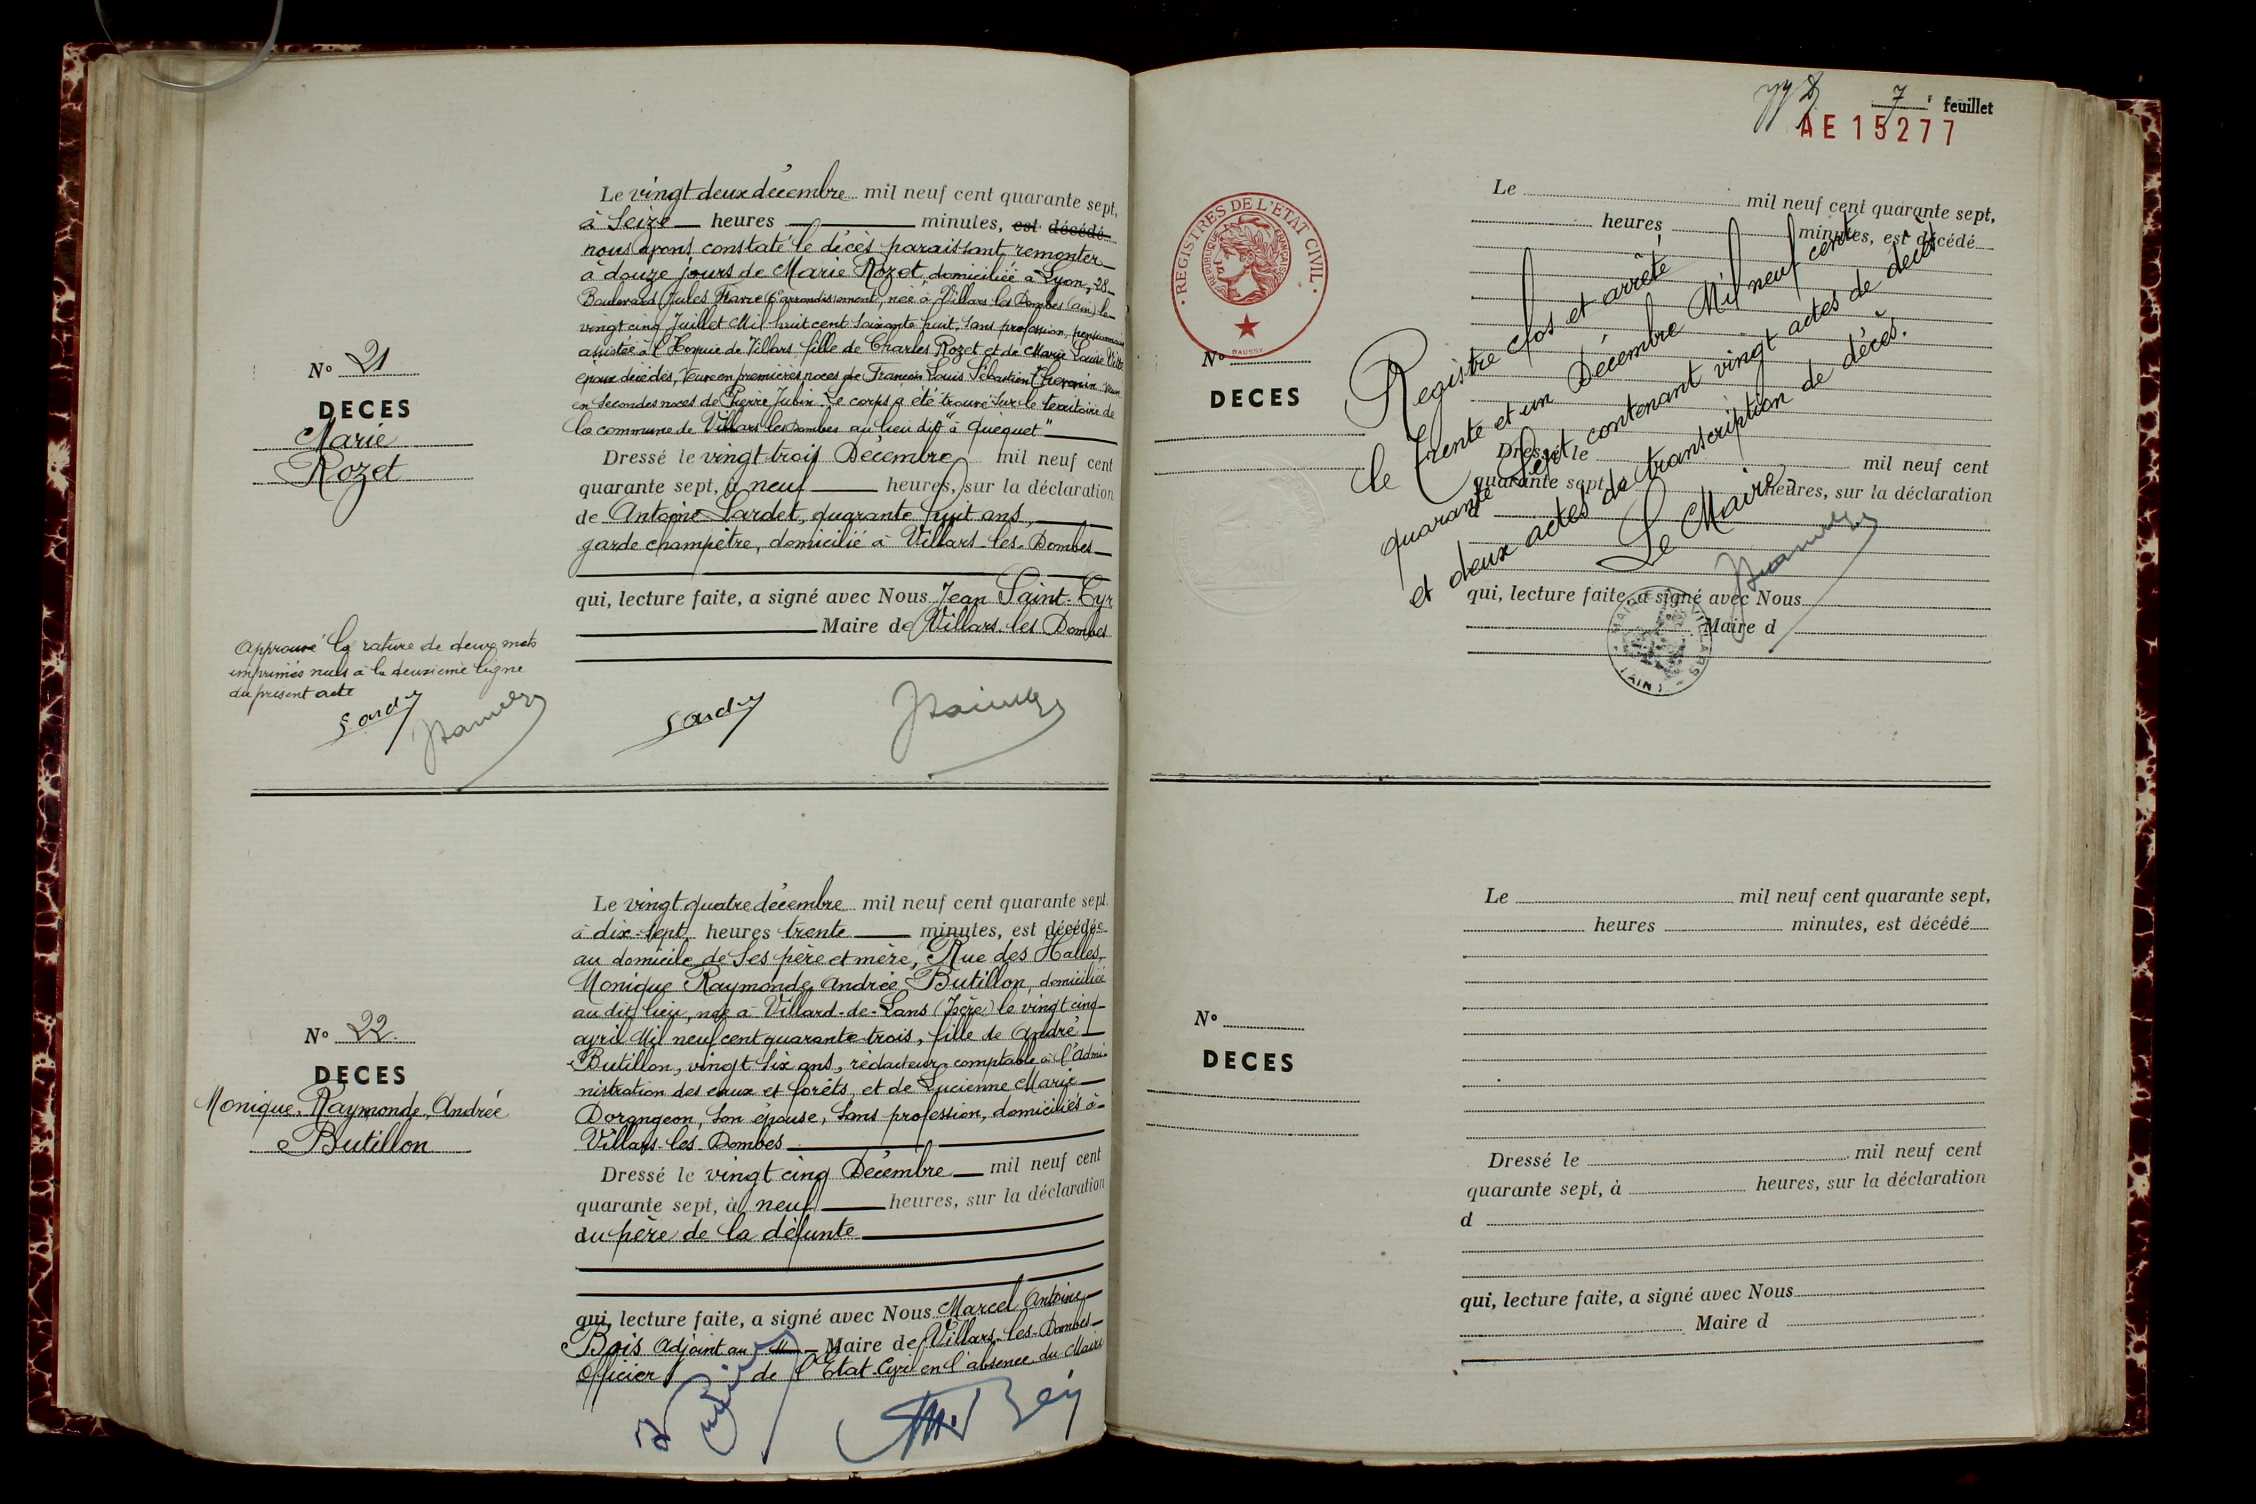 N° 21
DECES
Marie
Rozet
Le vingt deux décembre mil neuf cent quarante sept,
à Seize heures minutes, est décédé
nous avons constaté le décès paraissant remonter
à douze jours de Marie Rozet, domiciliée à Lyon, 28
Boulevard Jules Favre (6e arrondissement), née à Villars les Dombes (ain) le
vingt cinq Juillet Mil huit cent soixante huit, sans profession, pensionnaire
assistée à l'Hospice de Villars fille de Charles Rozet et de Marie Louise
époux décédés, Veuve en premières noces de François Louis Sébastien Thevenin veuve
en secondes noces de Pierre Jubin. Le corps a été trouvé sur le territoire de
la commune de Villars les Dombes au lieu dit "à Quequet"
Dressé le vingt trois Décembre mil neuf cent
quarante sept, à neuf heures, sur la déclaration
de Antoine Sardet, quarante huit ans,
garde champêtre, domicilié à Villars-les-Dombes
qui, lecture faite, a signé avec Nous Jean Saint-Cyr
Maire de Villars-les Dombes
Approuvé la rature de deux mots
imprimés nuls à la deuxième ligne
du présent acte
N° 22.
DECES
Monique, Raymonde, Andrée
Butillon
Le vingt quatre décembre mil neuf cent quarante sept.
à dix-sept heures trente minutes, est décédée
au domicile de ses père et mère, Rue des Halles,
Monique Raymonde Andrée Butillon, domiciliée
au dit lieu, née à Villard-de-Lans (Isère) le vingt cinq
avril Mil neuf cent quarante trois, fille de André
Butillon, vingt six ans, rédacteur comptable à l'Admi-
nistration des eaux et forêts, et de Lucienne Marie
Dorangeon, son épouse, sans profession, domiciliés à
Villars-les-Dombes
Dressé le vingt cinq Décembre mil neuf cent
quarante sept, à neuf heures, sur la déclaration
du père de la défunte
qui, lecture faite, a signé avec Nous Marcel Antoine
Bois Adjoint au Maire de Villars-les-Dombes
Officier de l'Etat Cyr en l'absence du Maire
7e feuillet
AE 15277
REGISTRES DE L'ETAT CIVIL
REPUBLIQUE FRANÇAISE
N°
DECES
Le mil neuf cent quarante sept,
heures minutes, est décédé
Registre clos et arrêté
le trente et un Décembre Mil neuf cent
quarante Sept, contenant vingt actes de décès
et deux actes de transcription de décès.
Le Maire
Dressé le mil neuf cent
quarante sept, heures, sur la déclaration
d
qui, lecture faite, a signé avec Nous
Maire d
MAIRIE DE VILLARS
(AIN)
N°
DECES
Le mil neuf cent quarante sept,
heures minutes, est décédé
Dressé le mil neuf cent
quarante sept, à heures, sur la déclaration
d
qui, lecture faite, a signé avec Nous
Maire d